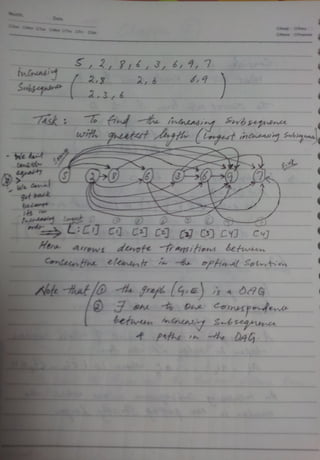 5, 2, 8, 6, 3, 6, 9, 7
Increasing Subsequence ( 2,8 2,6 6,9
2,3,6 )
Task: To find the increasing subsequence
with greatest length (Longest increasing Subsequence
- We don't consider equality
- We cannot get back because its in increasing order.
5 2 8 6 3 6 9 7
L: [1] [1] [2] [2] [2] [3] [4] [4]
Here arrows denote Transitions between
Consecutive elements in the optimal Solution
Note that ① the graph (G,E) is a DAG
② ∃ one to one correspondence
between increasing Subsequence
& paths in the DAG